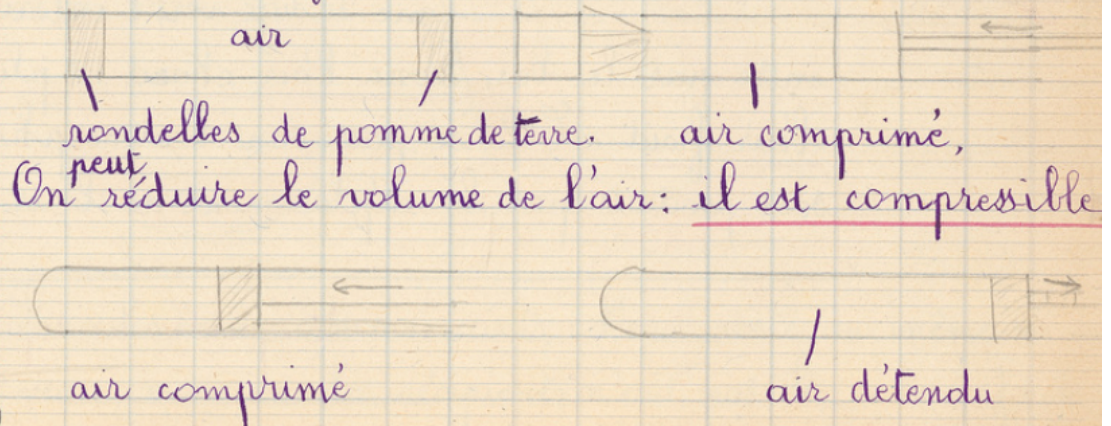 air
rondelles de pomme de terre. air comprimé,
On peut réduire le volume de l'air : il est compressible
air comprimé air détendu